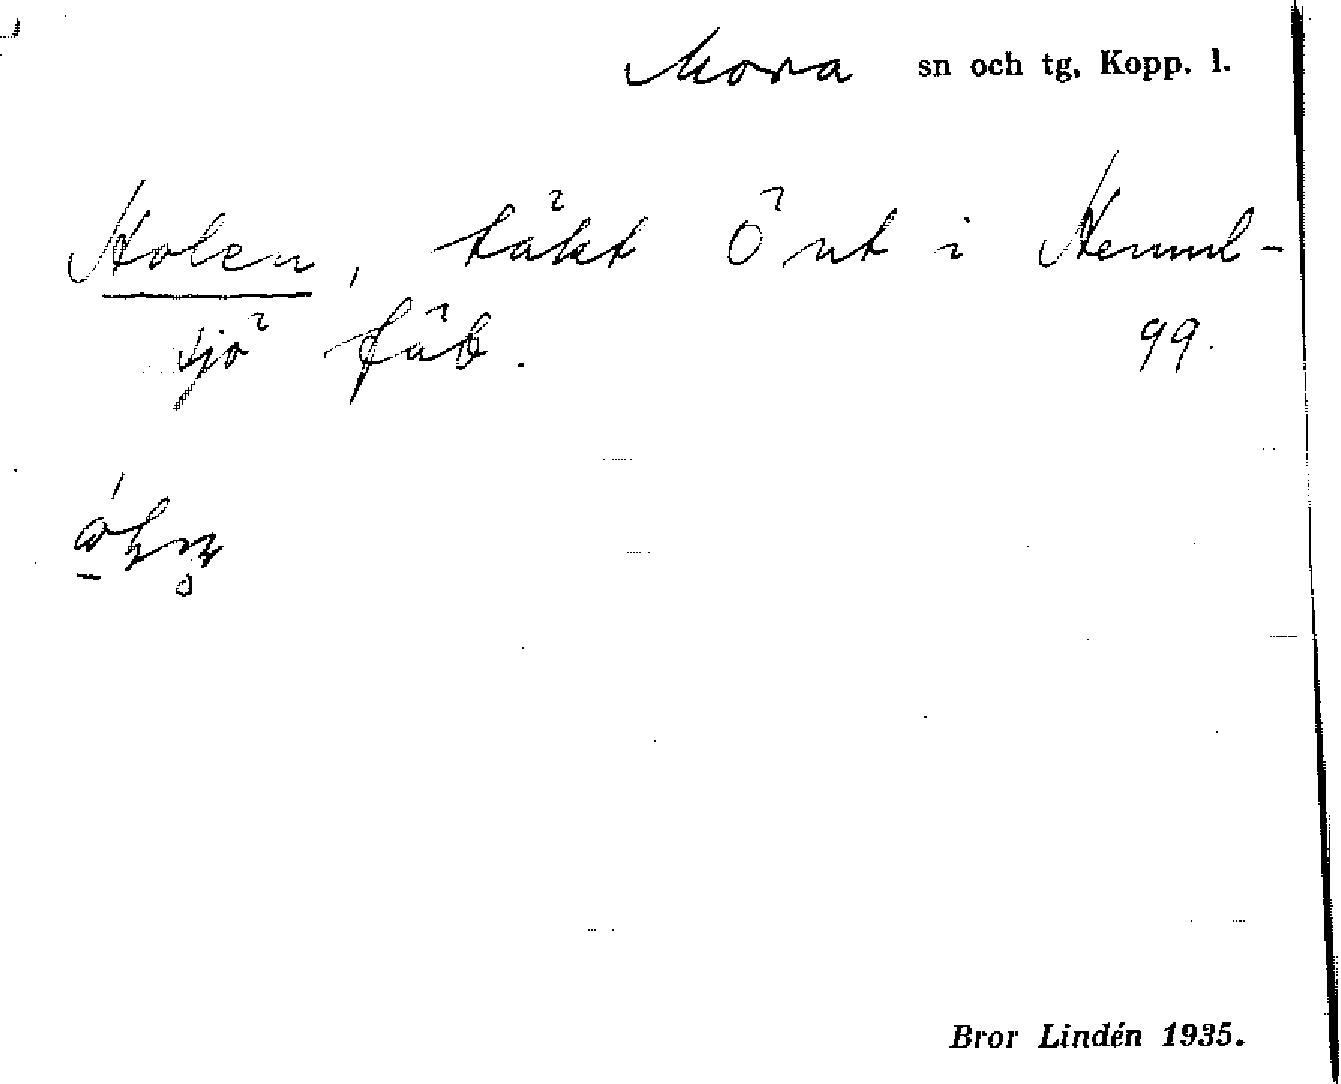 Mora sn och tg, Kopp. l.
Holen, täkt Ö nt i Heml-
sjö fäb. 99.
Bror Lindén 1935.